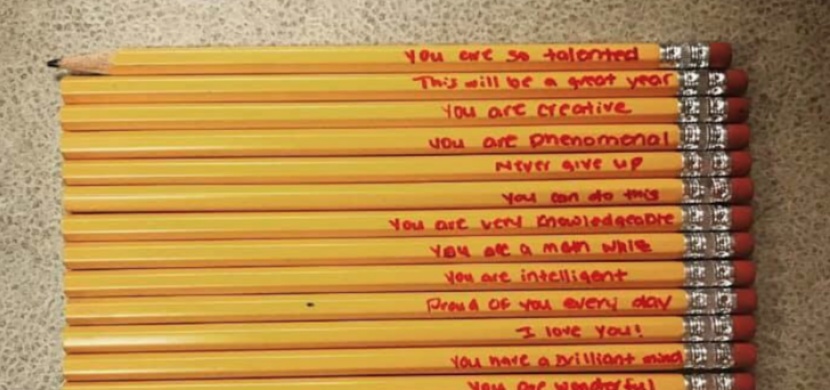 You are so talented
This will be a great year
You are creative
you are phenomenal
Never give up
You can do this
You are very knowledgeable
You are a math whiz
You are intelligent
Proud of you every day
I love you!
You have a brilliant mind
You are wonderful